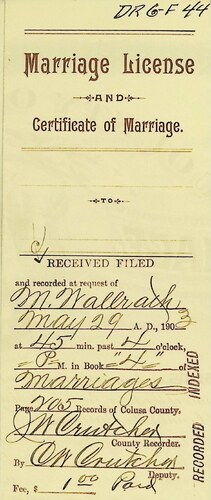 DR 6-F 44
Marriage License
AND
Certificate of Marriage.
TO
RECEIVED FILED
and recorded at request of
M. Wallrath
May 29 A. D., 1903
at 45 min. past 4 o'clock,
P. M. in Book "4" of
Marriages
Page 205 Records of Colusa County,
JW Crutcher
County Recorder.
By CW Crutcher
Deputy.
Fee, $ 1 00 Paid
INDEXED
RECORDED